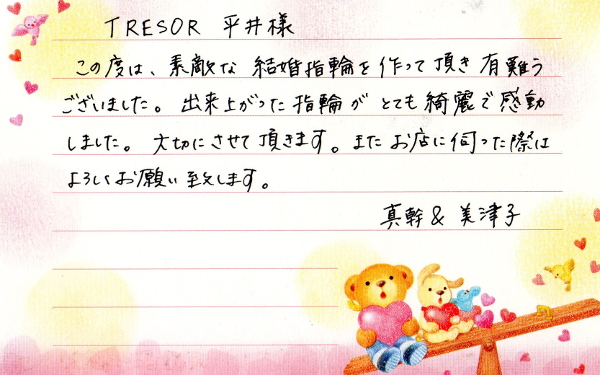 TRESOR 平井様
この度は、素敵な 結婚指輪を作って頂き 有難う
ございました。出来上がった指輪が とても綺麗で感動
しました。大切にさせて頂きます。また お店に伺った際は
よろしくお願い致します。
真幹 & 美津子